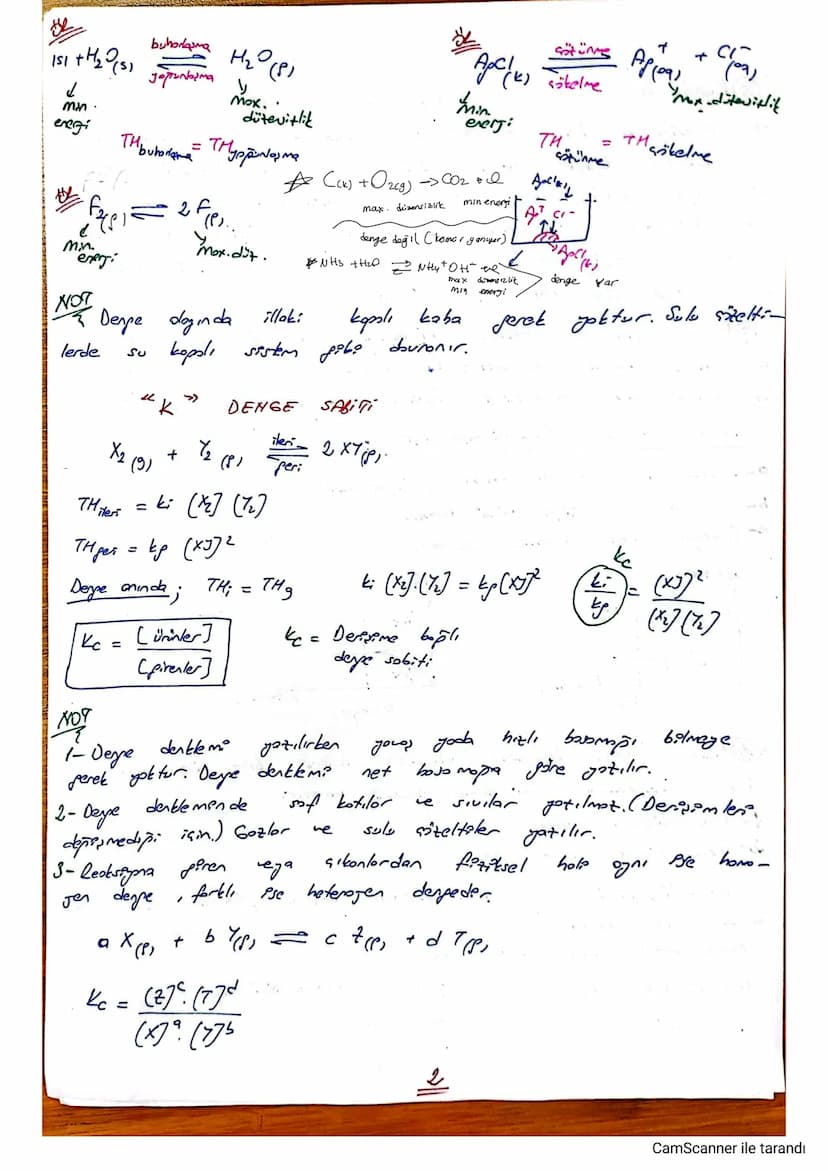 ÖR
ısı + H₂O(s) ⇌ H₂O(g)
buharlaşma
yoğunlaşma
min. enerji
max. düzensizlik
TH buharlaşma = TH yoğunlaşma
ÖR
AgCl(k) ⇌ Ag⁺(aq) + Cl⁻(aq)
çözünme
çökelme
min. enerji
max. düzensizlik
TH çözünme = TH çökelme
ÖR
F₂(g) ⇌ 2 F(g)
min. enerji
max. düz.
C(k) + O₂(g) → CO₂ + ısı
max. düzensizlik min enerji
denge değil (kömür yanıyor)
NH₃ + H₂O ⇌ NH₄⁺ OH⁻
max düzensizlik
min enerji
denge var
AgCl(k)
Ag⁺ Cl⁻
AgCl(k)
NOT
Denge olayında illaki kapalı kaba gerek yoktur. Sulu çözelti-
lerde su kapalı sistem gibi davranır.
"K" DENGE SABİTİ
X₂(g) + Y₂(g) ⇌ 2 XY(g)
ileri
geri
TH ileri = ki [X₂] [Y₂]
TH geri = kg [XY]²
Denge anında; THi = THg ki [X₂].[Y₂] = kg [XY]² ki/kg = [XY]²/[X₂][Y₂]
Kc
Kc = [ürünler]/[girenler]
Kc = Derişime bağlı
denge sabiti
NOT
1- Denge denklemi yazılırken yavaş yada hızlı basamağı bilmeye
gerek yoktur. Denge denklemi net basamağa göre yazılır.
2- Denge denkleminde saf katılar ve sıvılar yazılmaz. (Derişimleri
değişmediği için.) Gazlar ve sulu çözeltiler yazılır.
3- Reaksiyona giren veya çıkanlardan fiziksel hale aynı ise homo-
jen denge, farklı ise heterojen dengeder.
a X(g) + b Y(g) ⇌ c Z(g) + d T(g)
Kc = [Z]ᶜ.[T]ᵈ/[X]ᵃ.[Y]ᵇ
2
CamScanner ile tarandı